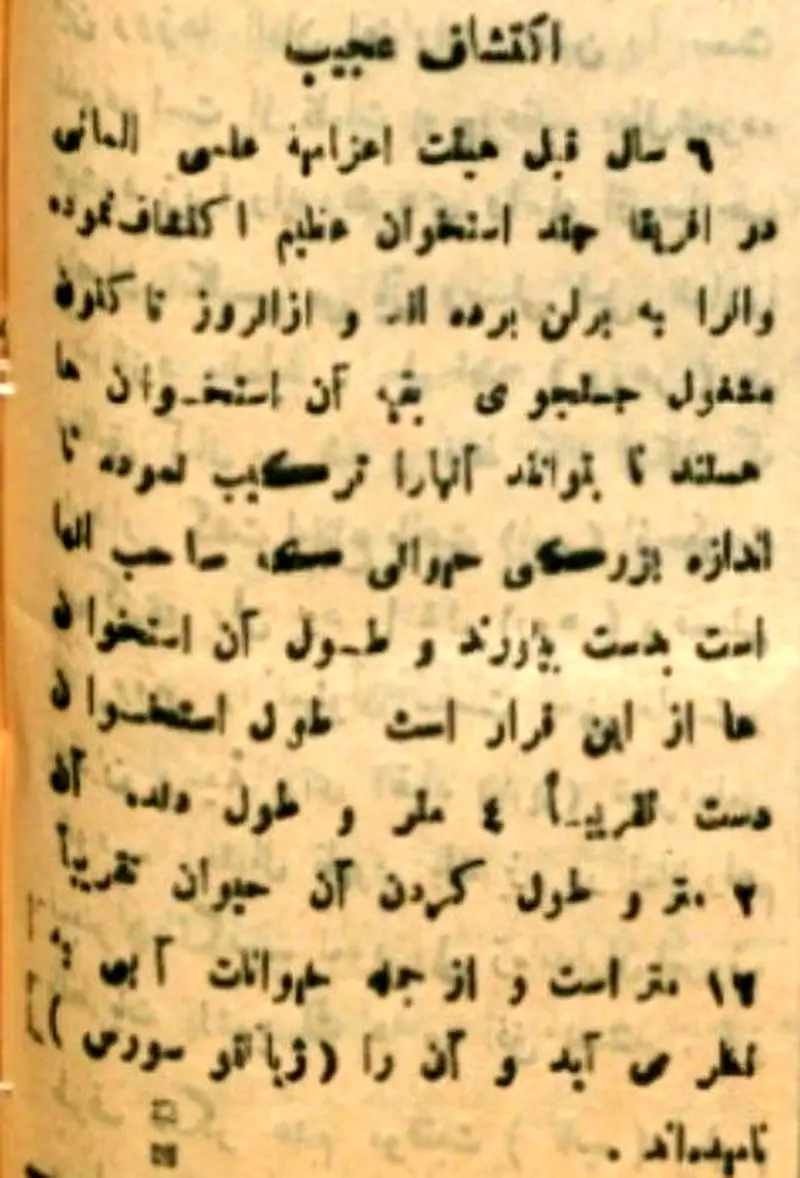 اکتشاف عجیب
۶ سال قبل هیئت اعزامیهٔ علمی المانی
در افریقا چند استخوان عظیم اکتشاف نموده
وانرا به برلن برده اند و ازانروز تاکنون
مشغول جستجوی بقیه آن استخوان ها
هستند تا بتوانند آنهارا ترکیب نموده تا
اندازه بزرگی حیوانی که صاحب انها
است بدست بیاورند و طول آن استخوان
ها از این قرار است طول استخوان
دست تقریباً ٤ متر و طول دنده آن
۲ متر و طول گردن آن حیوان تقریباً
۱۲ متر است و از جمله حیوانات آبی به
نظر می آید و آن را (ژیانتو سوری)
نامیده‌اند .